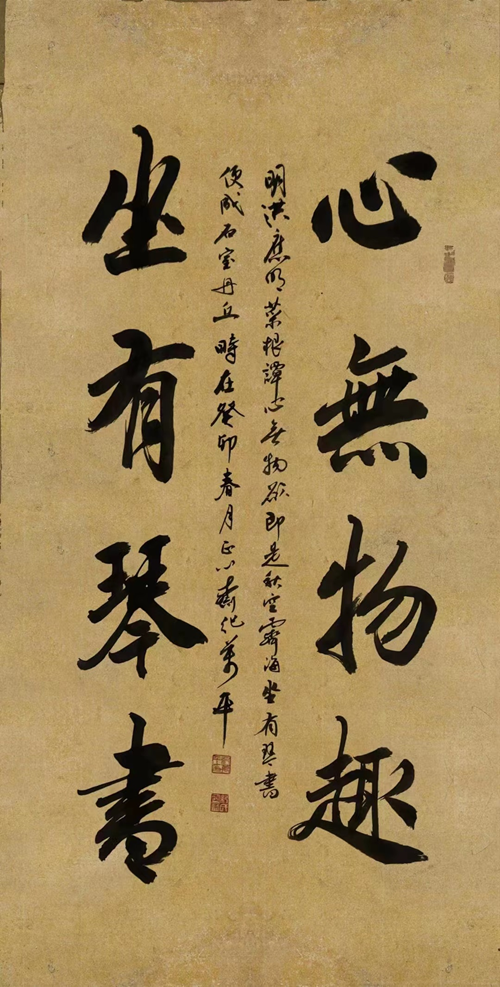 心無物趣
明洪應明菜根譚心無物欲即是秋空霽海坐有琴書
便成石室丹丘時在癸卯春月正心齋萬平
坐有琴書